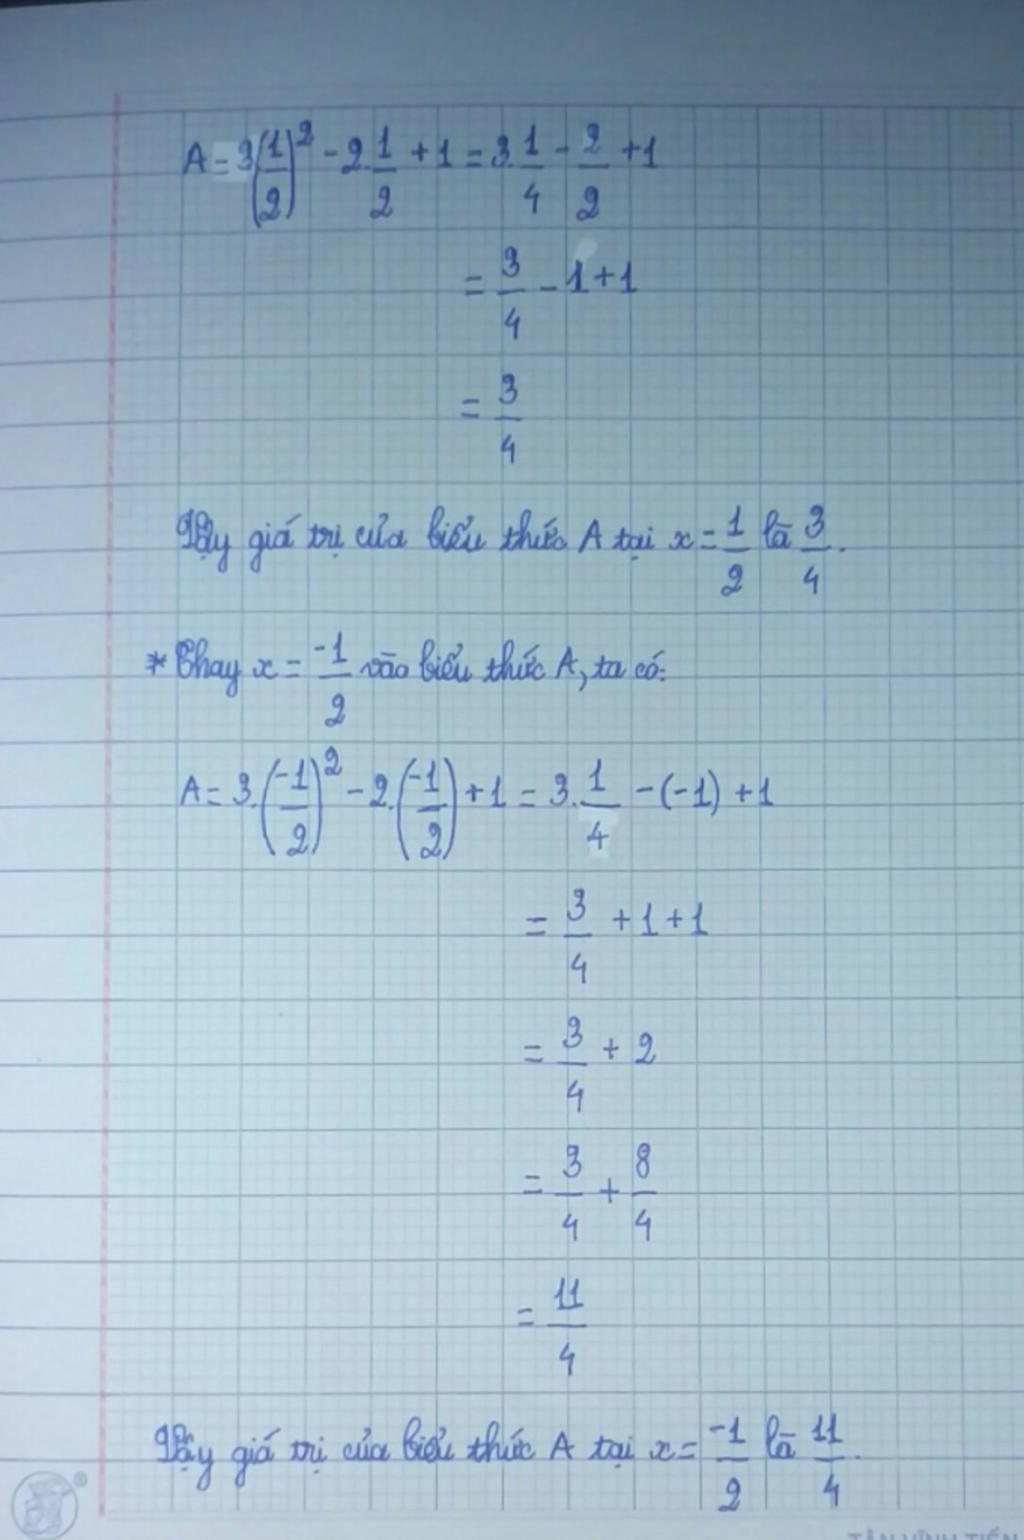 A = 3(1/2)² - 2.1/2 + 1 = 3.1/4 - 2/2 + 1
= 3/4 - 1 + 1
= 3/4
Vậy giá trị của biểu thức A tại x = 1/2 là 3/4.
* Thay x = -1/2 vào biểu thức A, ta có:
A = 3.(-1/2)² - 2.(-1/2) + 1 = 3.1/4 - (-1) + 1
= 3/4 + 1 + 1
= 3/4 + 2
= 3/4 + 8/4
= 11/4
Vậy giá trị của biểu thức A tại x = -1/2 là 11/4.
TÂN VĨNH TIẾN